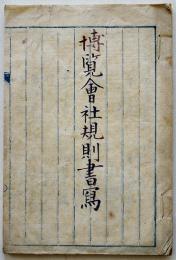 博覧會社規則書寫